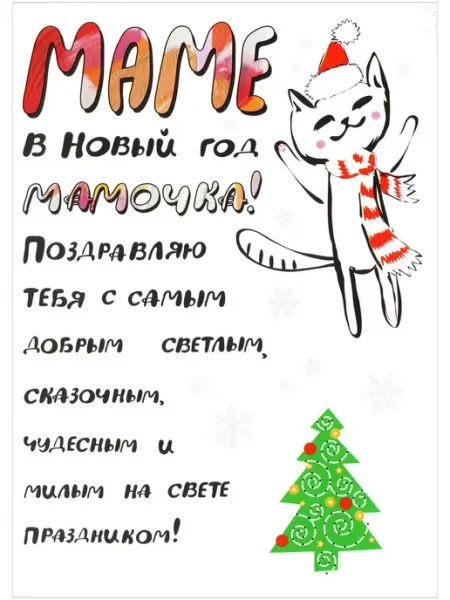 МАМЕ
В НОВЫЙ ГОД
МАМОЧКА!
ПОЗДРАВЛЯЮ
ТЕБЯ С САМЫМ
ДОБРЫМ СВЕТЛЫМ,
СКАЗОЧНЫМ,
ЧУДЕСНЫМ И
МИЛЫМ НА СВЕТЕ
ПРАЗДНИКОМ!